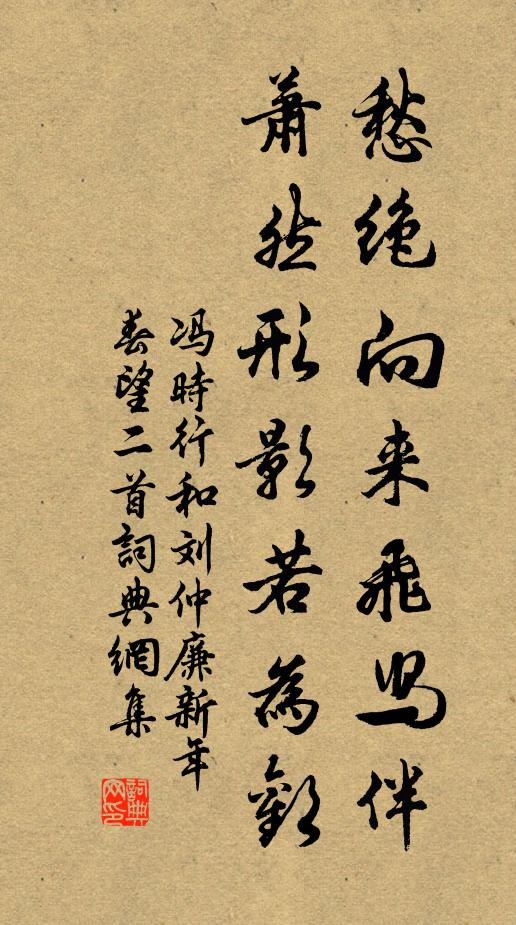 愁绝向来飛鸟伴
蕭然形影若為歡
冯時行和刘仲廉新年
春望二首詞典網集
詞典网印